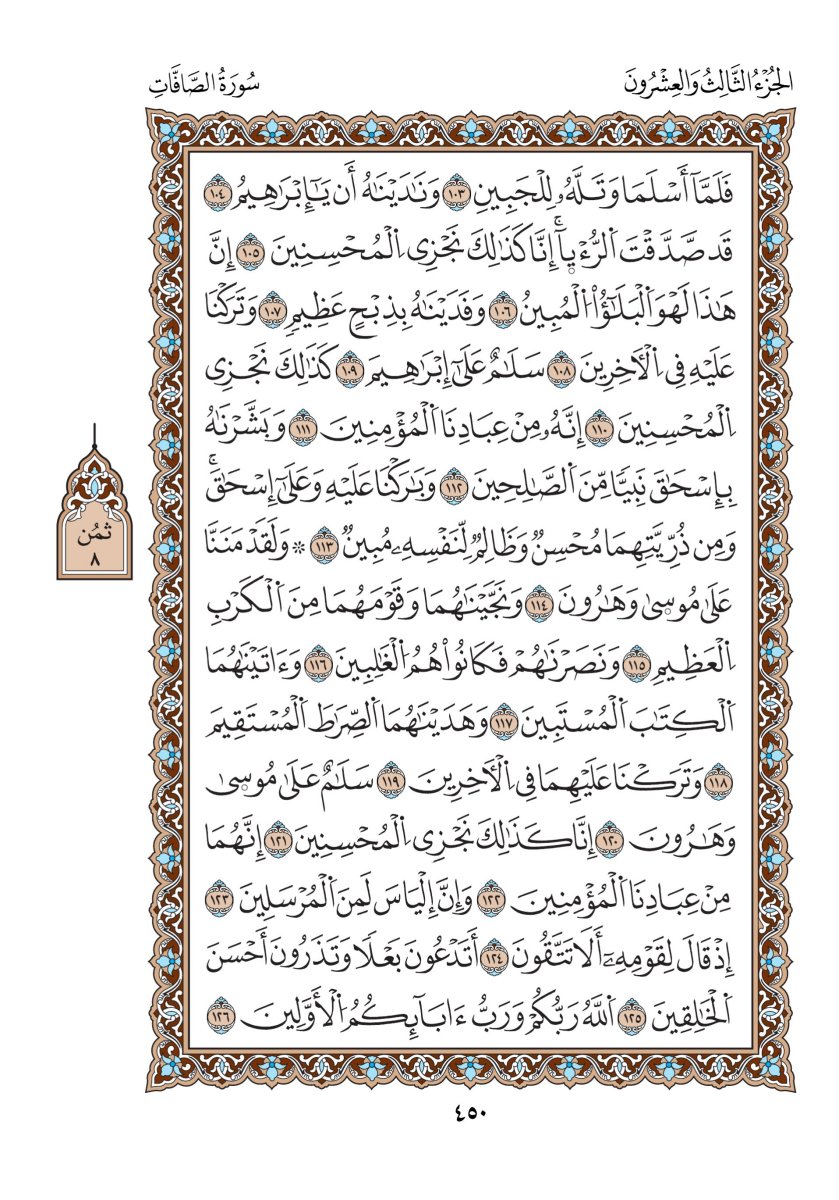 الجُزْءُ الثَّالِثُ وَالعِشْرُونَ
سُورَةُ الصَّافَّاتِ
فَلَمَّآ أَسْلَمَا وَتَلَّهُۥ لِلْجَبِينِ ١٠٣ وَنَٰدَيْنَٰهُ أَن يَٰٓإِبْرَٰهِيمُ ١٠٤
قَد صَّدَّقْتَ اَ۬لرُّءْيَآۚ إِنَّا كَذَٰلِكَ نَجْزِي اِ۬لْمُحْسِنِينَ ١٠٥ إِنَّ
هَٰذَا لَهْوَ اَ۬لْبَلَٰٓؤُاْ اُ۬لْمُبِينُ ١٠٦ وَفَدَيْنَٰهُ بِذِبْحٍ عَظِيمٖ ١٠٧ وَتَرَكْنَا
عَلَيْهِ فِي اِ۬لْأٓخِرِينَ ١٠٨ سَلَٰمٌ عَلَىٰٓ إِبْرَٰهِيمَ ١٠٩ كَذَٰلِكَ نَجْزِي
اِ۬لْمُحْسِنِينَ ١١٠ إِنَّهُۥ مِنْ عِبَادِنَا اَ۬لْمُؤْمِنِينَ ١١١ وَبَشَّرْنَٰهُ
بِإِسْحَٰقَ نَبِيّٗا مِّنَ اَ۬لصَّٰلِحِينَ ١١٢ وَبَٰرَكْنَا عَلَيْهِ وَعَلَىٰٓ إِسْحَٰقَۚ
وَمِن ذُرِّيَّتِهِمَا مُحْسِنٞ وَظَالِمٞ لِّنَفْسِهِۦ مُبِينٞ ١١٣ ۞ وَلَقَدْ مَنَنَّا
عَلَىٰ مُوسىٰ وَهَٰرُونَ ١١٤ وَنَجَّيْنَٰهُمَا وَقَوْمَهُمَا مِنَ اَ۬لْكَرْبِ
اِ۬لْعَظِيمِ ١١٥ وَنَصَرْنَٰهُمْ فَكَانُواْ هُمُ اُ۬لْغَٰلِبِينَ ١١٦ وَءَاتَيْنَٰهُمَا
اَ۬لْكِتَٰبَ اَ۬لْمُسْتَبِينَ ١١٧ وَهَدَيْنَٰهُمَا اَ۬لصِّرَٰطَ اَ۬لْمُسْتَقِيمَ
١١٨ وَتَرَكْنَا عَلَيْهِمَا فِي اِ۬لْأٓخِرِينَ ١١٩ سَلَٰمٌ عَلَىٰ مُوسىٰ
وَهَٰرُونَ ١٢٠ إِنَّا كَذَٰلِكَ نَجْزِي اِ۬لْمُحْسِنِينَ ١٢١ إِنَّهُمَا
مِنْ عِبَادِنَا اَ۬لْمُؤْمِنِينَ ١٢٢ وَإِنَّ إِلْيَاسَ لَمِنَ اَ۬لْمُرْسَلِينَ ١٢٣
إِذْ قَالَ لِقَوْمِهِۦٓ أَلَا تَتَّقُونَ ١٢٤ أَتَدْعُونَ بَعْلٗا وَتَذَرُونَ أَحْسَنَ
اَ۬لْخَٰلِقِينَ ١٢٥ اَ۬للَّهُ رَبُّكُمْ وَرَبُّ ءَابَآئِكُمُ اُ۬لْأَوَّلِينَ ١٢٦
ثمُن
٨
٤٥٠